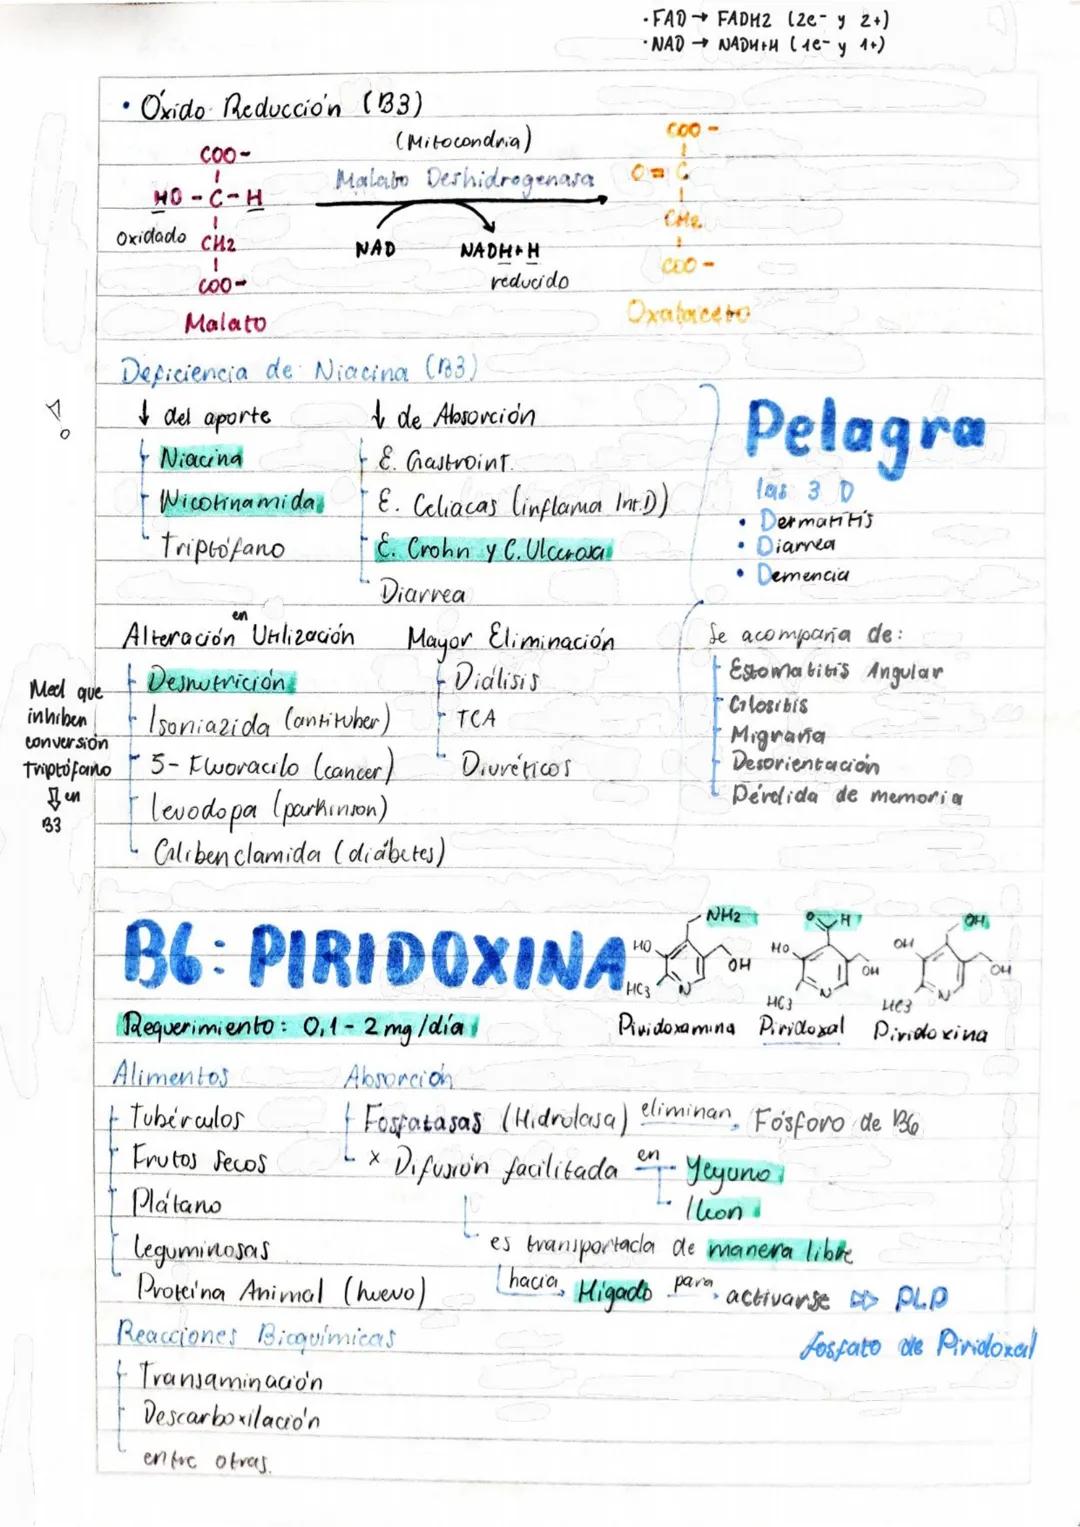 ·FAD → FADH2 (2e- y 2+)
·NAD → NADH+H (1e- y 1+)
• Óxido Reducción (B3)
COO-
HO - C - H
oxidado CH2
COO-
Malato
(Mitocondria)
Malato Deshidrogenasa
NAD NADH+H
reducido
COO-
O = C
CH2
COO-
Oxalaceto
Deficiencia de Niacina (B3)
↓ del aporte
Niacina
Nicotinamida
Triptófano
↓ de Absorción
E. Gastroint.
E. Celiacas (inflama Int.D)
E. Crohn y C. Ulcerosa
Diarrea
Pelagra
las 3 D
• Dermatitis
• Diarrea
• Demencia
Alteración en Utilización
Desnutrición
Isoniazida (antituber)
5- Fluoracilo (cancer)
Levodopa (parkinson)
Glibenclamida (diábetes)
Med que
inhiben
conversión
Triptófano
⇓ en
B3
Mayor Eliminación
Diálisis
TCA
Diuréticos
Se acompaña de:
Estomatitis Angular
Glositis
Migraña
Desorientación
Pérdida de memoria
B6: PIRIDOXINA
NH2
HO
OH
HC3
N
Piridoxamina
O H
HO
OH
HC3
N
Piridoxal
OH
OH
OH
HC3
N
Piridoxina
Requerimiento: 0,1 - 2 mg/día
Alimentos
Tubérculos
Frutos Secos
Plátano
Leguminosas
Proteína Animal (huevo)
Absorción
Fosfatasas (Hidrolasa) eliminan Fósforo de B6
x Difusión facilitada en Yeyuno
Ileon
es transportada de manera libre
hacia Hígado para activarse ▷▷ PLP
fosfato de Piridoxal
Reacciones Bioquímicas
Transaminación
Descarboxilación
entre otras.